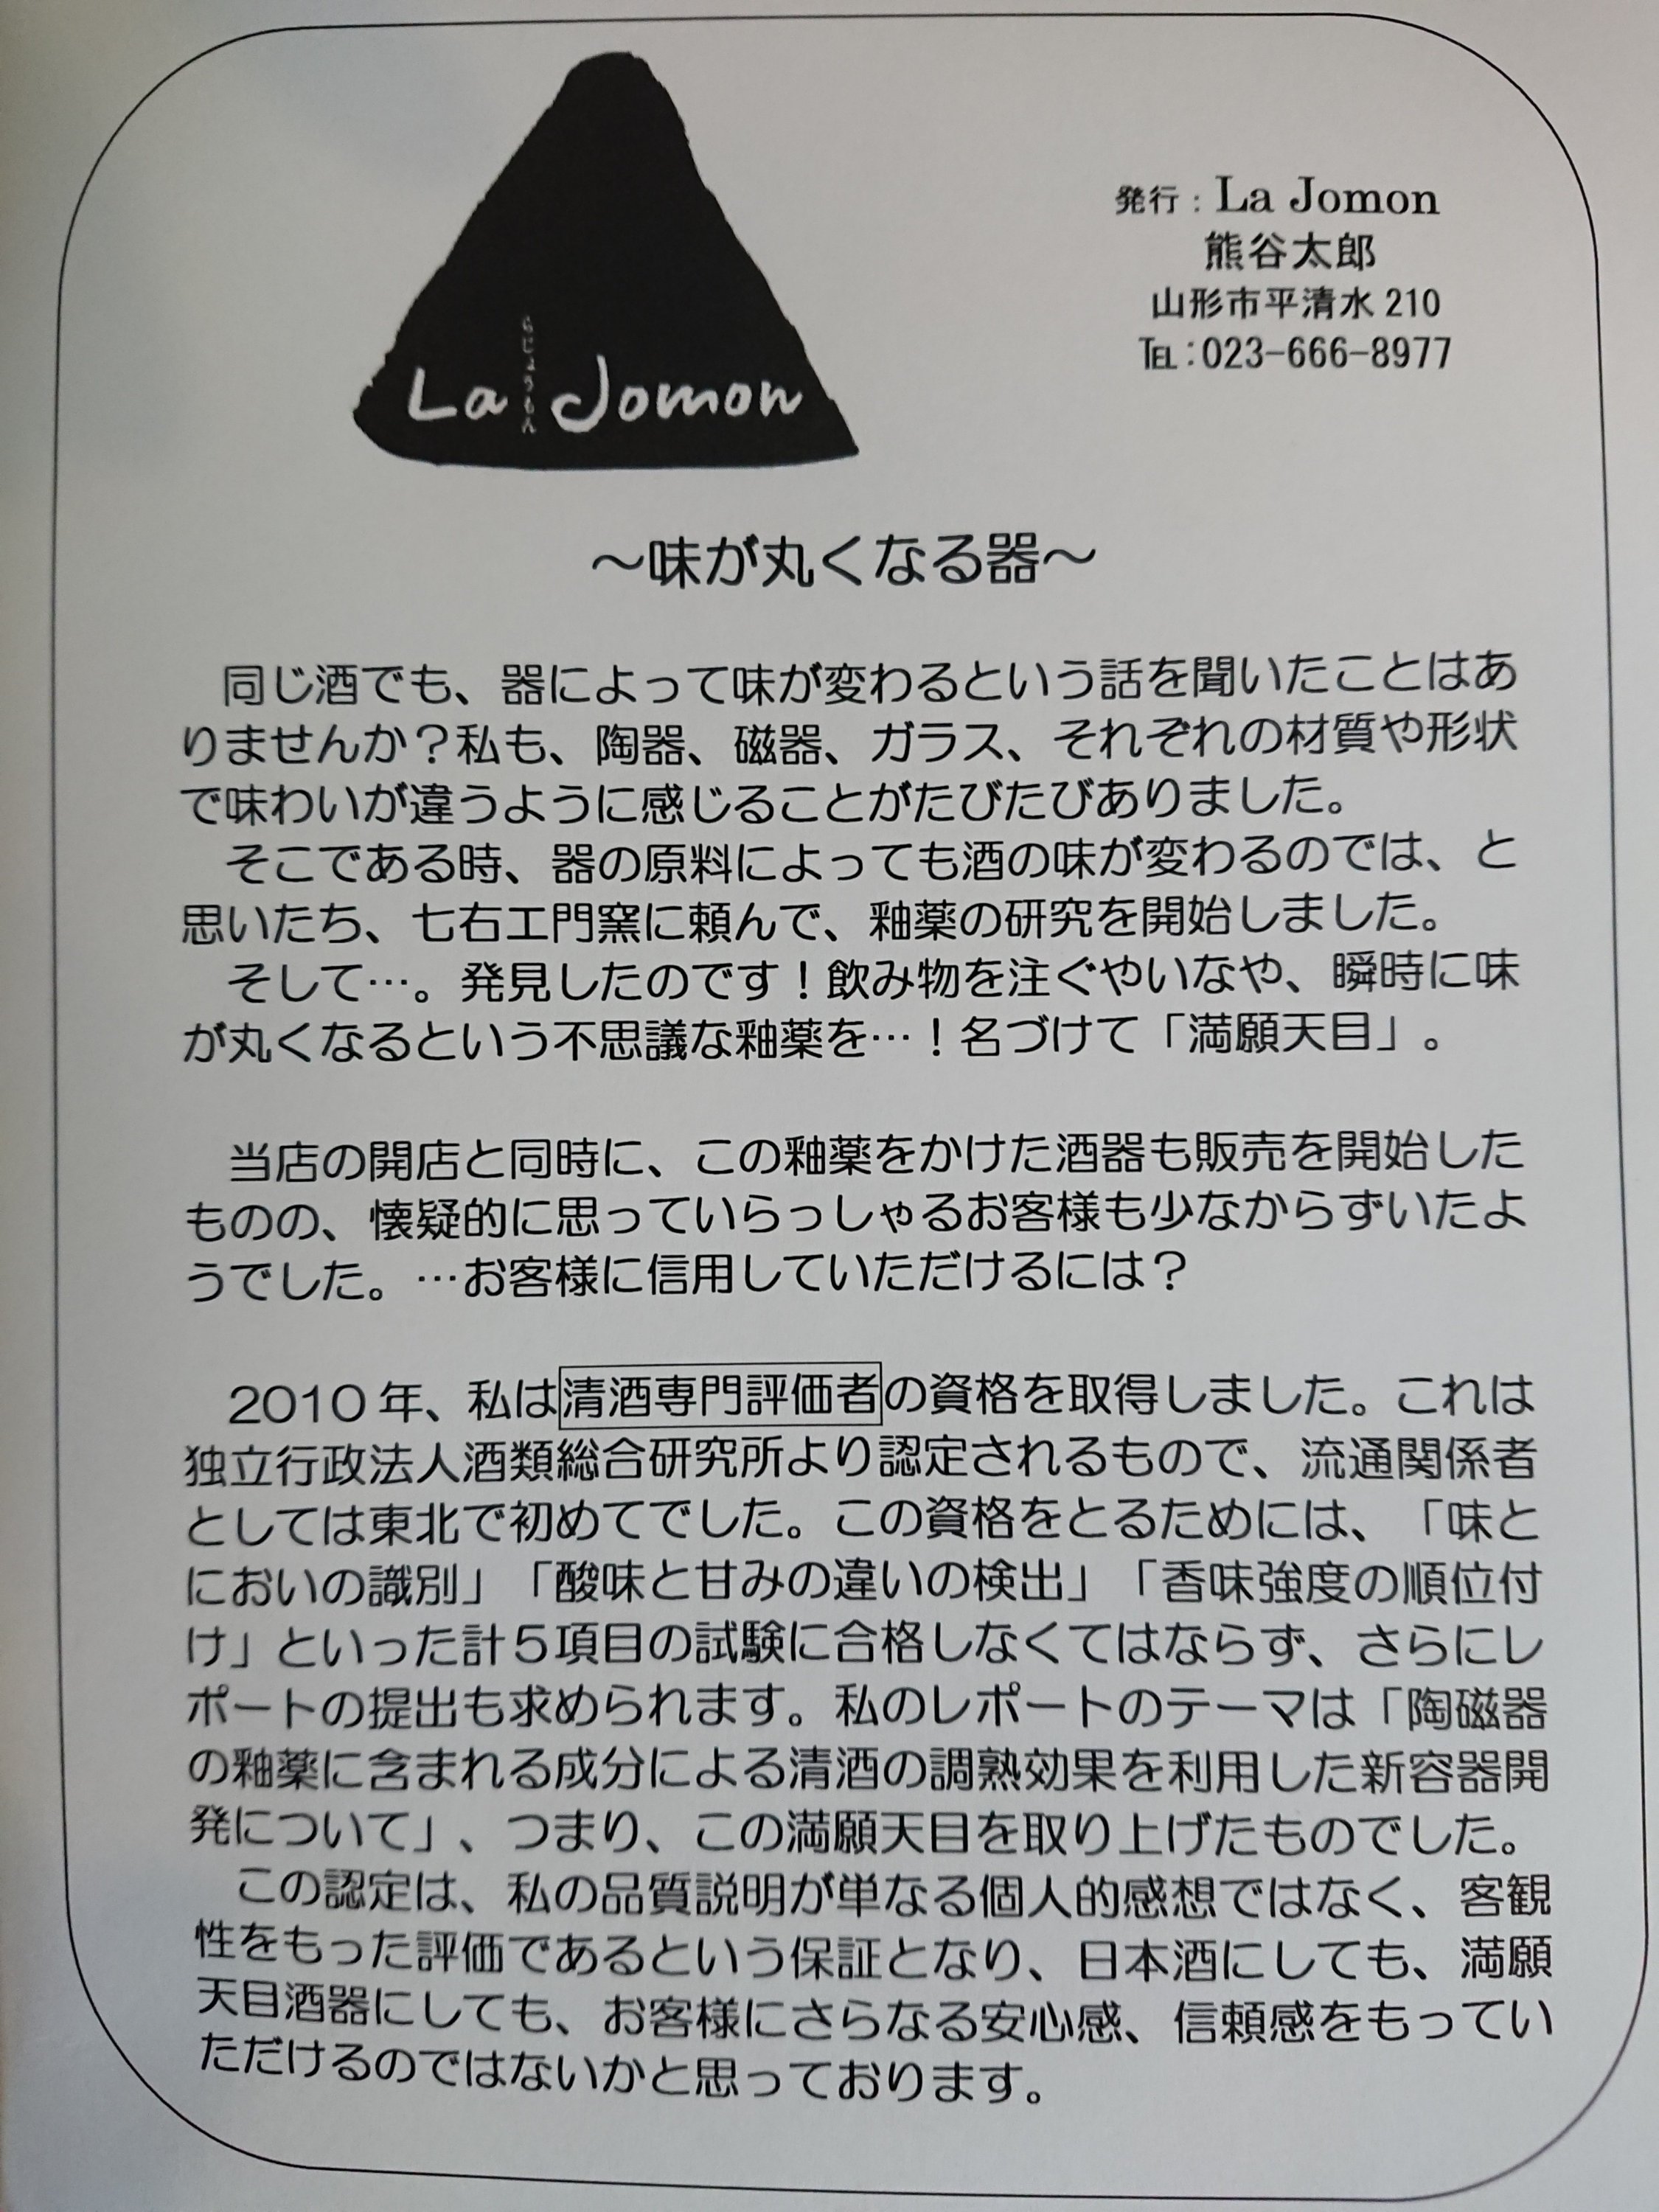 発行：La Jomon
熊谷太郎
山形市平清水 210
TEL：023-666-8977
らじょうもん
La Jomon
～味が丸くなる器～
同じ酒でも、器によって味が変わるという話を聞いたことはあ
りませんか？私も、陶器、磁器、ガラス、それぞれの材質や形状
で味わいが違うように感じることがたびたびありました。
そこである時、器の原料によっても酒の味が変わるのでは、と
思いたち、七右エ門窯に頼んで、釉薬の研究を開始しました。
そして…。発見したのです！飲み物を注ぐやいなや、瞬時に味
が丸くなるという不思議な釉薬を…！名づけて「満願天目」。
当店の開店と同時に、この釉薬をかけた酒器も販売を開始した
ものの、懐疑的に思っていらっしゃるお客様も少なからずいたよ
うでした。…お客様に信用していただけるには？
2010年、私は清酒専門評価者の資格を取得しました。これは
独立行政法人酒類総合研究所より認定されるもので、流通関係者
としては東北で初めてでした。この資格をとるためには、「味と
においの識別」「酸味と甘みの違いの検出」「香味強度の順位付
け」といった計５項目の試験に合格しなくてはならず、さらにレ
ポートの提出も求められます。私のレポートのテーマは「陶磁器
の釉薬に含まれる成分による清酒の調熟効果を利用した新容器開
発について」、つまり、この満願天目を取り上げたものでした。
この認定は、私の品質説明が単なる個人的感想ではなく、客観
性をもった評価であるという保証となり、日本酒にしても、満願
天目酒器にしても、お客様にさらなる安心感、信頼感をもってい
ただけるのではないかと思っております。